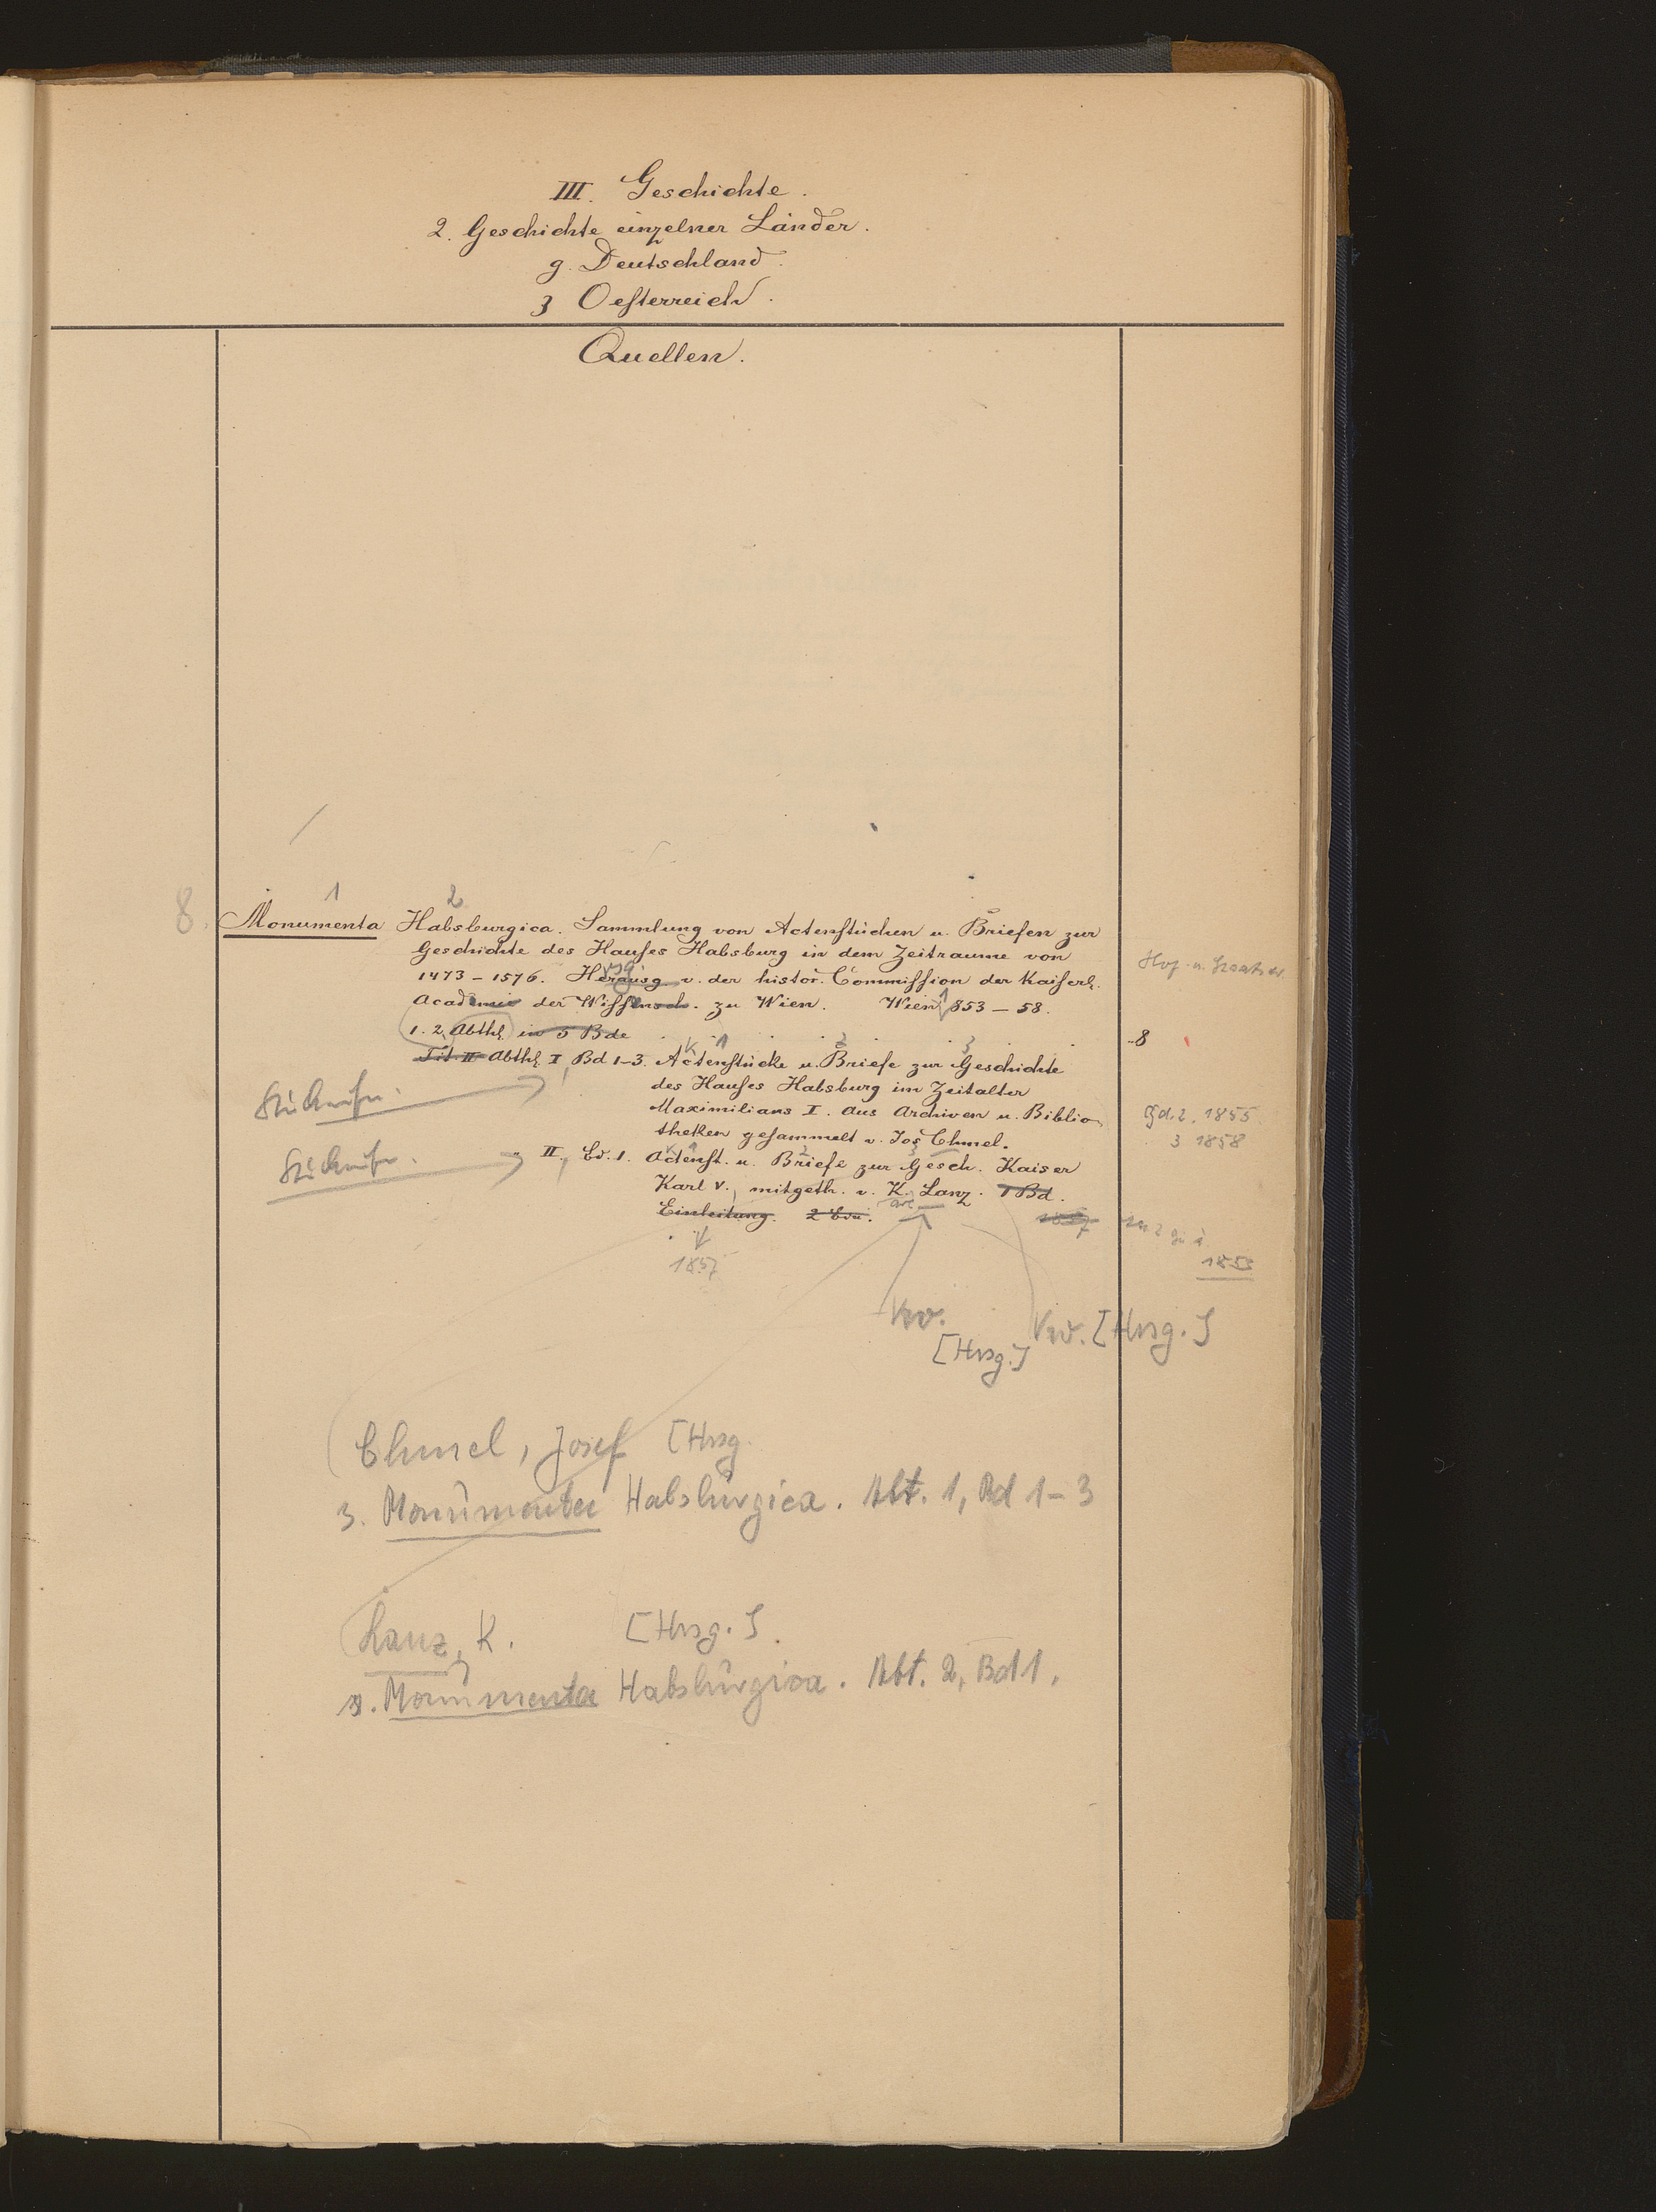 III. Geschichte.
2. Geschichte einzelner Länder.
g. Deutschland.
3 Oesterreich.
Quellen.
1 2
8. Monumenta Habsburgica. Sammlung von Actenstücken u. Briefen zur
Geschichte des Hauses Habsburg in dem Zeitraume von
1473 – 1576. Herausg. v. der histor. Commission der Kaiserl.
Hof- u. Staats
Academie der Wissensch. zu Wien. Wien 1853 – 58.
1. 2 Abthl. in 5 Bde 8
Tit. II Abthl. I, Bd 1–3. Actenstücke u. Briefe zur Geschichte
des Hauses Habsburg im Zeitalter
Maximilians I. Aus Archiven u. Biblio-
Bd. 2. 1855
theken gesammelt v. Jos Chmel.
3 1858
" II, Bd. 1. Actenst. u. Briefe zur Gesch. Kaiser
Karl V., mitgeth. v. K. Lanz. 1 Bd.
Einleitung. 1857
1857
1853
[Hrsg.]
[Hrsg.]
Chmel, Josef [Hrsg.
3. Monumenta Habsburgica. Abt. 1, Bd 1–3
Lanz, K. [Hrsg.]
Monumenta Habsburgica. Abt. 2, Bd 1.